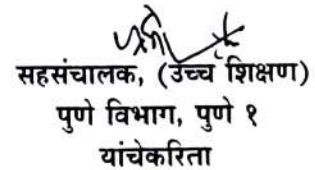 सहसंचालक, (उच्च शिक्षण)
पुणे विभाग, पुणे १
यांचेकरिता